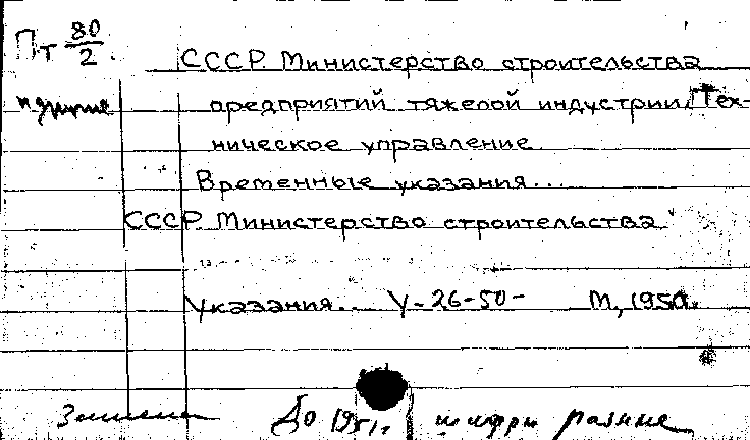 Пт 80/2.
СССР. Министерство строительства
и другие предприятий тяжелой индустрии. Тех-
ническое управление
Временные указания...
СССР. Министерство строительства
Указания... У-26-50- М., 1950.
До 1951г. шифры разные